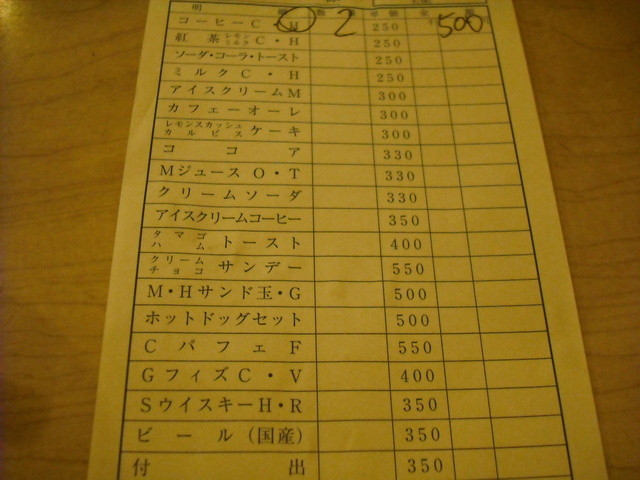 明 単価 金
コーヒーC・H 2 250 500
紅茶レモンミルクC・H 250
ソーダ・コーラ・トースト 250
ミルクC・H 250
アイスクリームM 300
カフェーオーレ 300
レモンスカッシュカルピスケーキ 300
ココア 330
MジュースO・T 330
クリームソーダ 330
アイスクリームコーヒー 350
タマゴハムトースト 400
クリームチョコサンデー 550
M・Hサンド玉・G 500
ホットドッグセット 500
CパフェF 550
GフィズC・V 400
SウイスキーH・R 350
ビール(国産) 350
付出 350